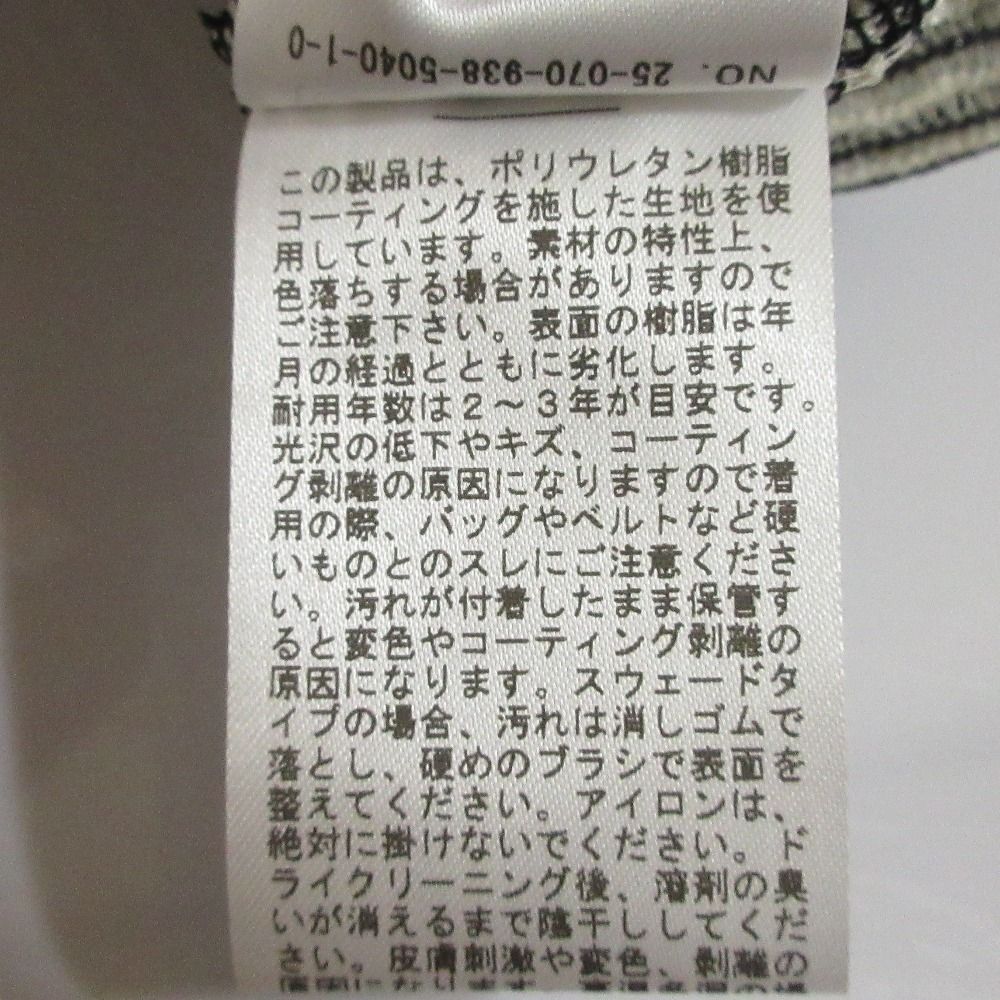 NO. 25-070-938-5040-1-0
この製品は、ポリウレタン樹脂
コーティングを施した生地を使
用しています。素材の特性上、
色落ちする場合がありますので
ご注意下さい。表面の樹脂は年
月の経過とともに劣化します。
耐用年数は2～3年が目安です。
光沢の低下やキズ、コーティン
グ剥離の原因になりますので着
用の際、バッグやベルトなど硬
いものとのスレにご注意くださ
い。汚れが付着したまま保管す
ると変色やコーティング剥離の
原因になります。スウェードタ
イプの場合、汚れは消しゴムで
落とし、硬めのブラシで表面を
整えてください。アイロンは、
絶対に掛けないでください。ド
ライクリーニング後、溶剤の臭
いが消えるまで陰干ししてくだ
さい。皮膚刺激や変色、剥離の
原因になります。高温多湿の場